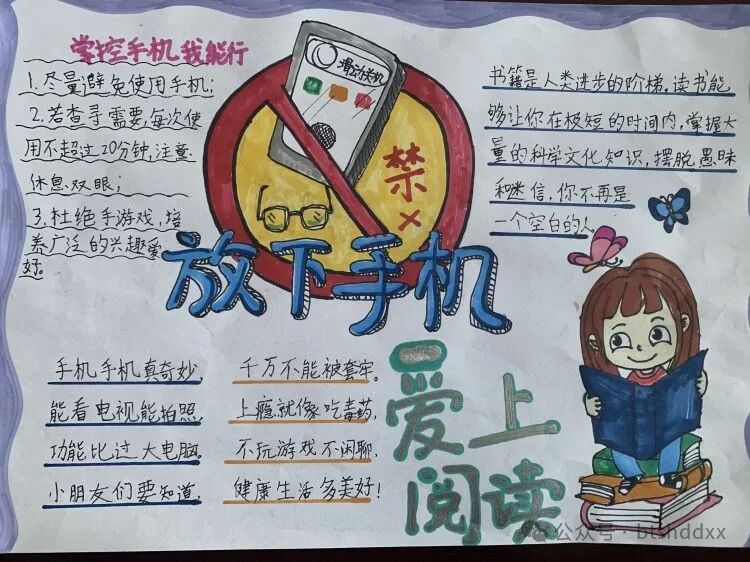 掌控手机我能行
1.尽量避免使用手机;
2.若查寻需要,每次使
用不超过20分钟,注意
休息双眼;
3.杜绝手游戏,培
养广泛的兴趣爱
好。
滑动关机
禁
放下手机
书籍是人类进步的阶梯,读书能
够让你在极短的时间内,掌握大
量的科学文化知识,摆脱愚昧
和迷信,你不再是
一个空白的人
手机手机真奇妙,
能看电视能拍照,
功能比过大电脑。
小朋友们要知道,
千万不能被套牢。
上瘾就像吃毒药,
不玩游戏不闲聊,
健康生活多美好!
爱上
阅读
公众号·btshddxx